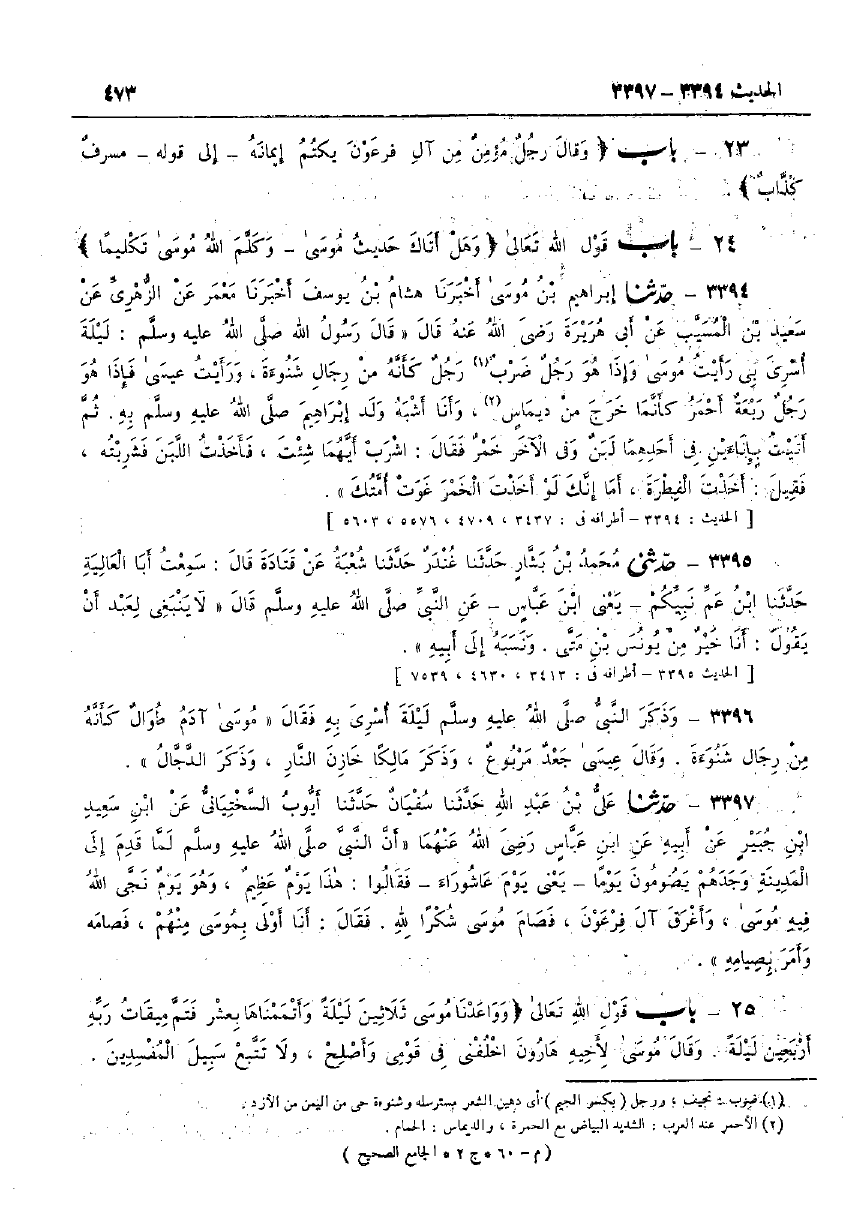 الحديث ٣٣٩٤ – ٣٣٩٧ ٤٧٣
٢٣ – باب ﴿ وَقالَ رجُلٌ مُؤمِنٌ مِن آلِ فرعَوْنَ يكتُمُ إيمانَهُ – إلى قوله – مسرفٌ
كذَّابٌ ﴾ .
٢٤ – باب قَوْلِ اللهِ تَعَالىٰ ﴿ وَهَلْ أتَاكَ حَديثُ مُوسَىٰ – وَكلَّمَ اللهُ مُوسَىٰ تَكْليمًا ﴾
٣٣٩٤ – حدّثنا إبراهيم بْنُ مُوسَىٰ أخْبَرَنَا هشامُ بْنُ يوسفَ أخبَرَنَا مَعْمَر عَنْ الزُّهْرِىِّ عَنْ
سَعِيدِ بْنِ الْمُسَيَّبِ عَنْ أبى هُرَيْرَةَ رَضىَ اللهُ عَنهُ قالَ « قالَ رَسُولُ الله صلَّى اللهُ عليه وسلَّم : لَيْلَةَ
أُسْرِىَ بى رَأَيْتُ مُوسىٰ وَإذَا هُوَ رَجُلٌ ضَرْبٌ (١) رَجُلٌ كَأنَّهُ منْ رجَالِ شَنُوءَةَ ، وَرَأيْتُ عيسَىٰ فَإذَا هُوَ
رَجُلٌ رَبْعَةٌ أحْمَرُ كَأنَّمَا خَرَجَ منْ ديمَاسٍ (٢) ، وَأنَا أشْبَهُ وَلَدِ إبْرَاهِيمَ صلَّى اللهُ عليهِ وسلَّم بِهِ . ثُمَّ
أتيْتُ بِإنَاءَيْنِ فى أحَدِهِمَا لَبَنٌ وَفى الْآخَرِ خَمْرٌ فَقَالَ : اشْرَبْ أيَّهُمَا شئِتَ ، فَأخَذْتُ اللَّبَنَ فَشَرِبْتُه ،
فَقِيلَ : أخَذْتَ الْفِطْرَةَ ، أمَا إنَّكَ لَوْ أخَذْتَ الْخَمْرَ غَوَتْ أُمَّتُكَ » .
[ الحديث : ٣٣٩٤ – أطرافه فى : ٣٤٣٧ ، ٤٧٠٩ ، ٥٥٧٦ ، ٥٦٠٣ ]
٣٣٩٥ – حدّثنى مُحَمدُ بْنُ بَشَّارٍ حَدَّثَنَا غُنْدَرٌ حَدَّثَنَا شُعْبَةُ عَنْ قَتَادَةَ قَالَ : سَمِعْتُ أبَا الْعَالِيَةِ
حَدَّثَنَا ابْنُ عَمِّ نَبِيِّكُمْ – يَعْنى ابْنَ عَبَّاسٍ – عَنِ النَّبىِّ صلَّى اللهُ عليهِ وسلَّم قَالَ « لَا يَنْبَغِى لِعَبْد أنْ
يَقُولَ : أنَا خَيْرٌ مِنْ يُونُسَ بْنِ مَتَّى . وَنَسَبَهُ إلَى أبيهِ » .
[ الحديث ٣٣٩٥ – أطرافه فى : ٣٤١٣ ، ٤٦٣٠ ، ٧٥٣٩ ]
٣٣٩٦ – وَذَكَرَ النَّبىُّ صلَّى اللهُ عليهِ وسلَّم لَيْلَةَ أُسْرِىَ بِهِ فَقَالَ « مُوسَىٰ آدَمُ طُوَالٌ كَأنَّهُ
مِنْ رِجَالِ شَنُوءَةَ . وَقَالَ عِيسَىٰ جَعْدٌ مَرْبُوعٌ ، وَذَكَرَ مَالِكًا خَازِنَ النَّارِ ، وَذَكَرَ الدَّجَّالَ » .
٣٣٩٧ – حدّثنا عَلىُّ بْنُ عَبْدِ اللهِ حَدَّثَنَا سُفْيَانُ حَدَّثَنَا أيُّوبُ السَّخْتِيَانىُّ عَنْ ابْنِ سَعِيدِ
ابْنِ جُبَيْرٍ عَنْ أبِيهِ عَنِ ابنِ عَبَّاسٍ رَضِىَ اللهُ عَنْهُمَا « أنَّ النَّبىَّ صلَّى اللهُ عليهِ وسلَّم لَمَّا قَدِمَ إلَى
الْمَدِينَةِ وَجَدَهُمْ يَصُومُونَ يَوْمًا – يَعْنى يَوْمَ عَاشُورَاءَ – فَقَالُوا : هٰذَا يَوْمٌ عَظِيمٌ ، وَهُوَ يَوْمٌ نَجَّى اللهُ
فِيهِ مُوسَىٰ ، وَأغْرَقَ آلَ فِرْعَوْنَ ، فَصَامَ مُوسَى شُكْرًا لِلهِ . فَقَالَ : أنَا أوْلَى بِمُوسَى مِنْهُمْ ، فَصامَه
وَأمَرَ بِصِيامِهِ » .
٢٥ – باب قَوْلِ اللهِ تَعَالىٰ ﴿ وَوَاعَدْنَا مُوسَى ثَلَاثِينَ لَيْلَةً وَأتْمَمْنَاهَا بِعشْر فَتَمَّ مِيقَاتُ رَبِّهِ
أرْبَعِينَ لَيْلَةً . وَقَالَ مُوسَىٰ لِأخِيهِ هَارُونَ اخْلُفْنى فِى قَوْمِى وَأصْلِحْ ، ولَا تَتَّبِعْ سَبِيلَ الْمُفْسِدِينَ .
(١) ضرب : نحيف ؛ ورجل ( بكسر الجيم ) أى دهين الشعر مسترسله وشنوءة حى من اليمن من الأزد .
(٢) الأحمر عند العرب : الشديد البياض مع الحمرة ، والديماس : الحمام .
( م – ٦٠ * ج ٢ * الجامع الصحيح )